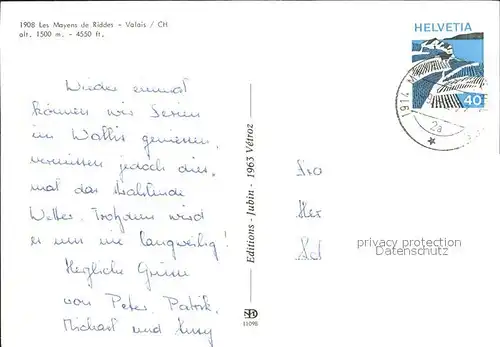 1908 Les Mayens de Riddes - Valais / CH
alt. 1500 m. - 4550 ft.
HELVETIA
40
1914 M
2a
Wieder einmal
können wir Ferien
im Wallis geniessen,
vermissen jedoch dies-
mal das strahlende
Wetter. Trotzdem wird
es uns nie langweilig!
Herzliche Grüsse
von Peter, Patrik,
Michael und
Editions - Jubin - 1963 Vétroz
11098
privacy protection
Datenschutz